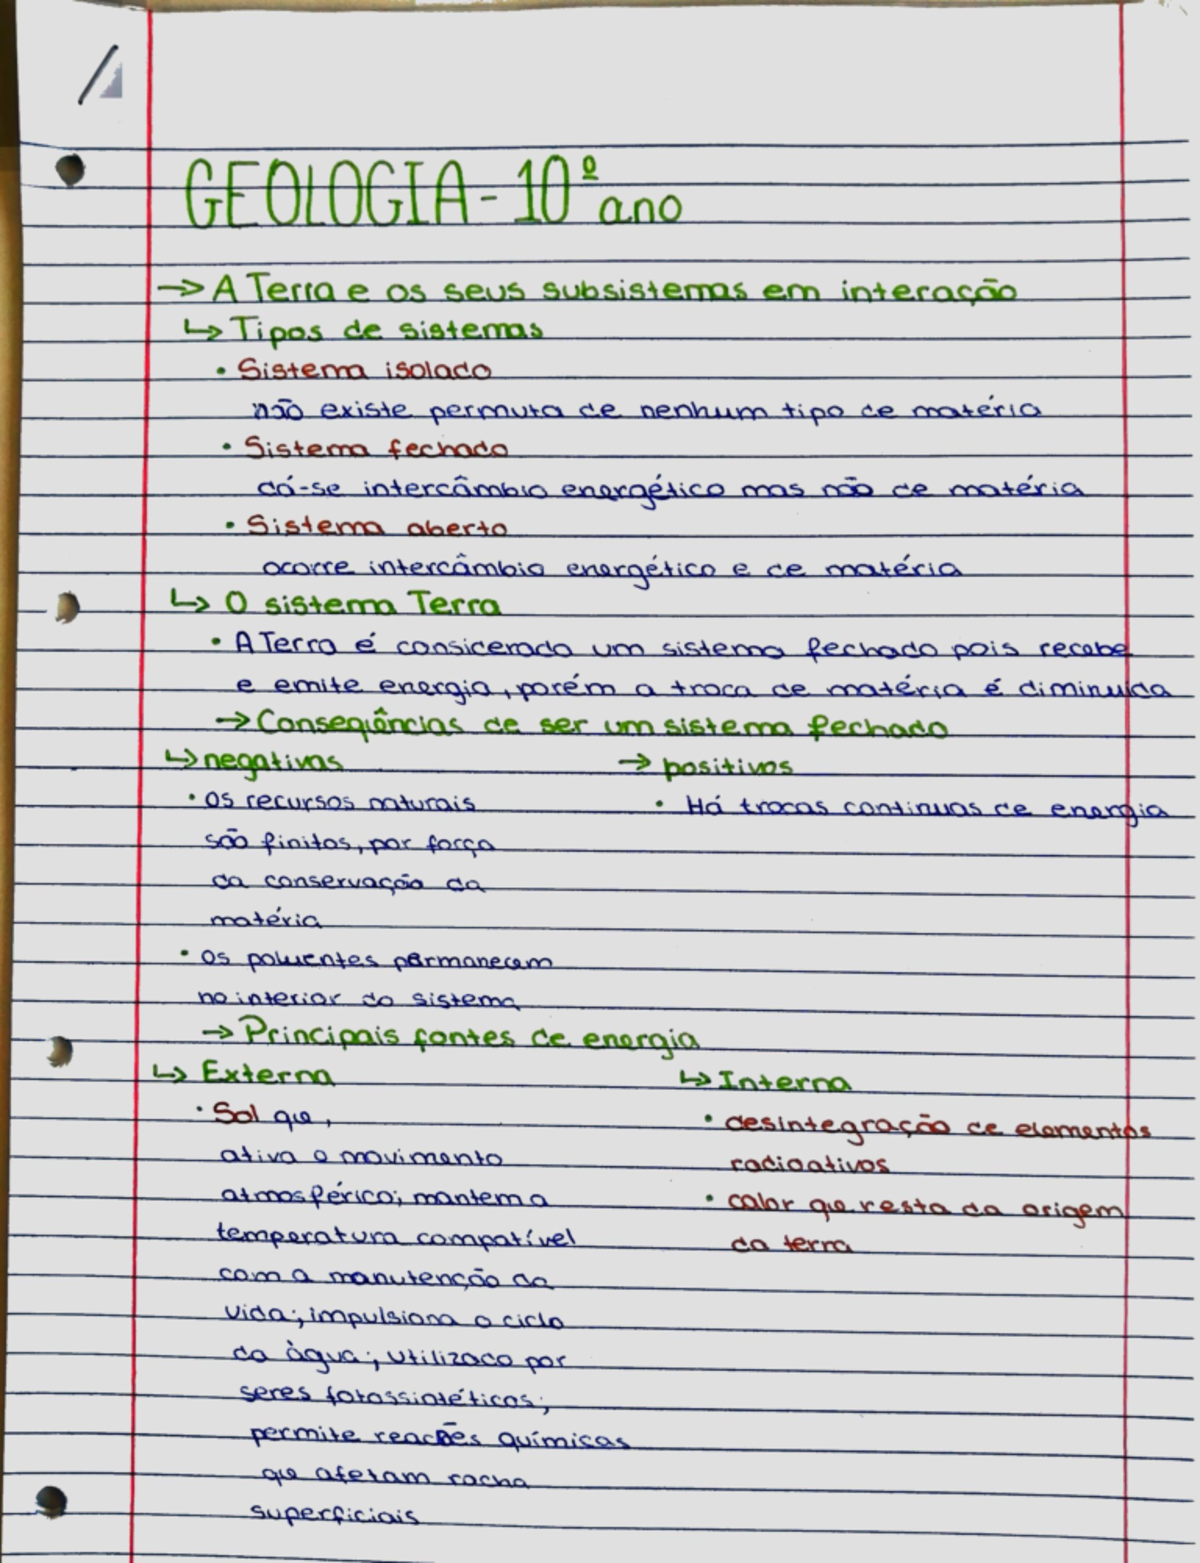 GEOLOGIA - 10º ano
→ A Terra e os seus subsistemas em interação
↳ Tipos de sistemas
• Sistema isolado
não existe permuta de nenhum tipo de matéria
• Sistema fechado
dá-se intercâmbio energético mas não de matéria
• Sistema aberto
ocorre intercâmbio energético e de matéria
↳ O sistema Terra
• A Terra é considerada um sistema fechado pois recebe
e emite energia, porém a troca de matéria é diminuida
→ Conseqüências de ser um sistema fechado
↳ negativas
• Os recursos naturais
são finitos, por força
da conservação da
matéria
• Os poluentes permanecem
no interior do sistema
→ positivos
• Há trocas continuas de energia
→ Principais fontes de energia
↳ Externa
• Sol que,
ativa o movimento
atmosférico; mantem a
temperatura compatível
com a manutenção da
vida; impulsiona o ciclo
da àgua; utilizado por
seres fotossintéticos;
permite reacões químicas
que afetam rocha
superficiais
↳ Interna
• desintegração de elementos
radioativos
• calor que resta da origem
da terra